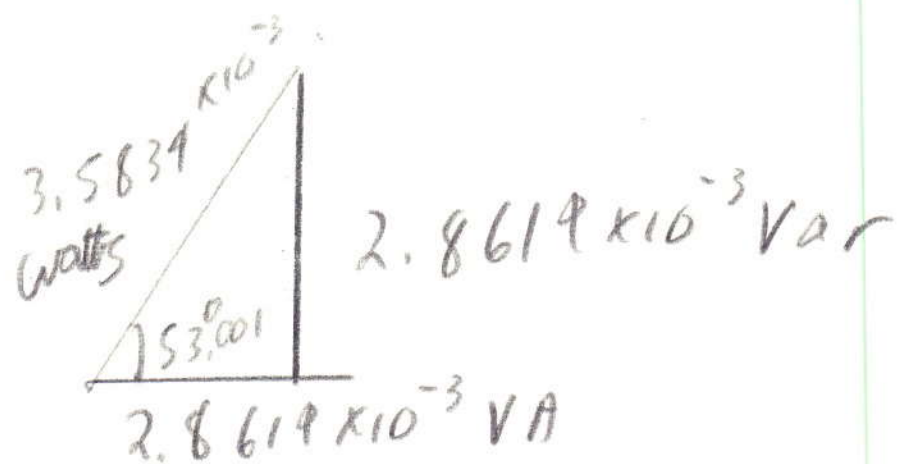 3.5834 x10⁻³
watts
2.8619 x10⁻³ Var
53.001°
2.8619 x10⁻³ VA